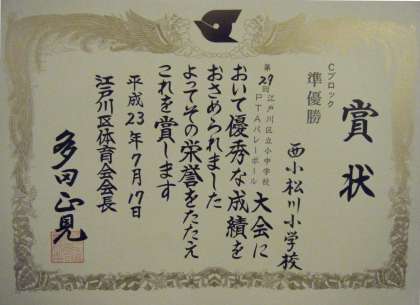 賞状
Cブロック
準優勝
西小松川小学校
第29回江戸川区立小中学校
PTAバレーボール
大会に
おいて優秀な成績を
おさめられました
よってその栄誉をたたえ
これを賞します
平成23年7月17日
江戸川区体育会会長
多田正見